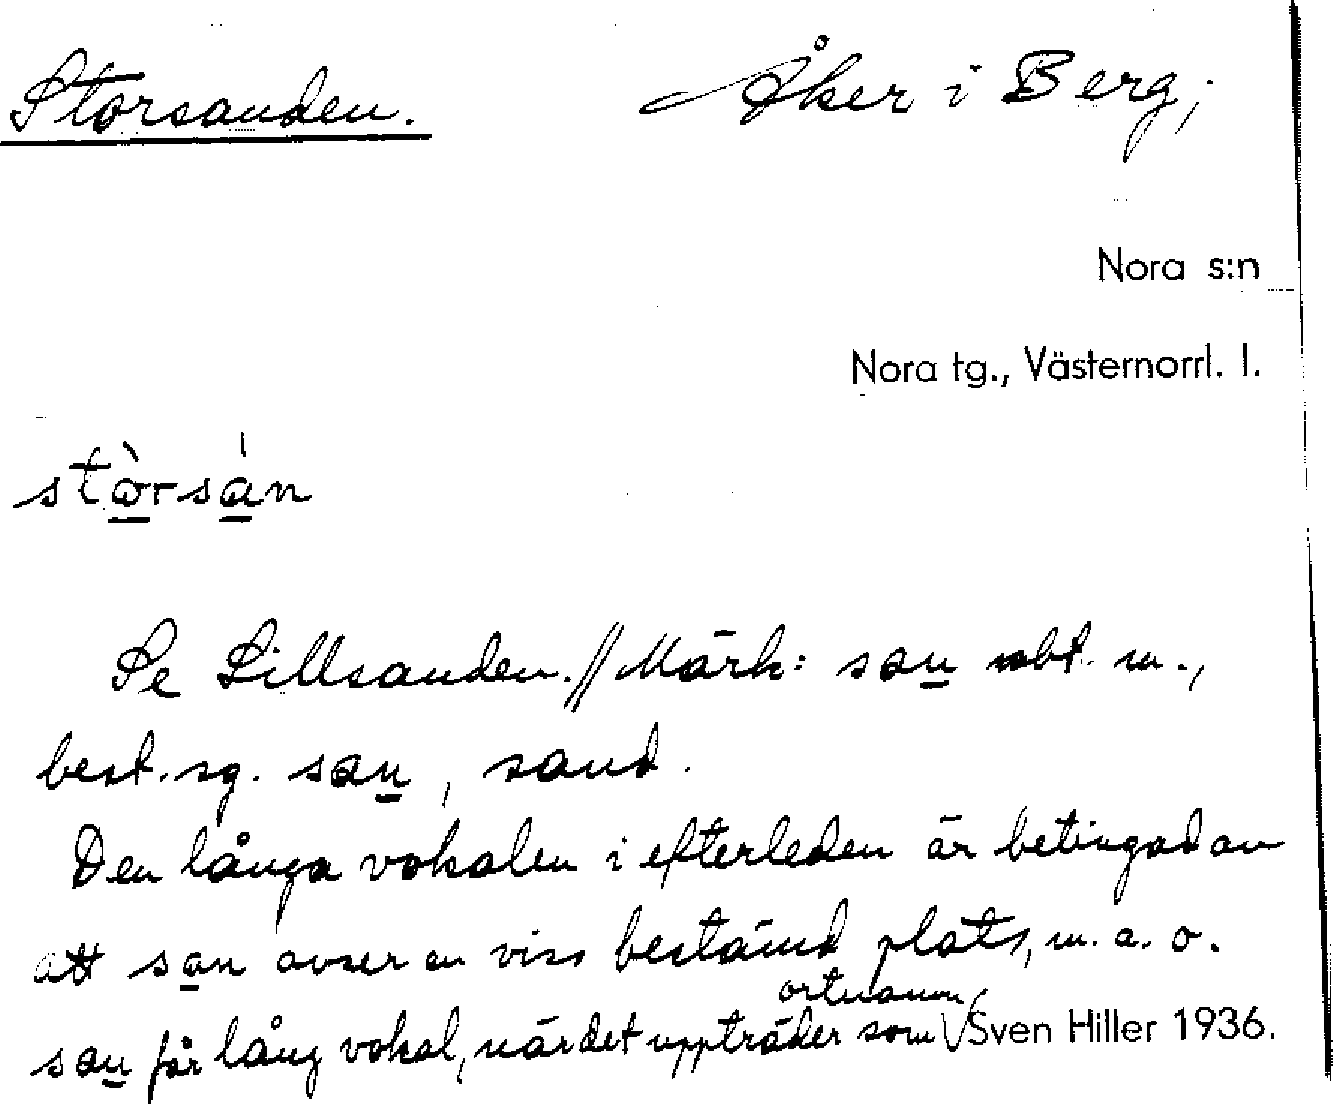 Storsanden. Åker i Berg;
Nora s:n
Nora tg., Västernorrl. l.
stòrsán
Se Lillsanden. // Märk: san obt. m.,
best. sg. san, sand.
Den långa vokalen i efterleden är betingad av
att san avser en viss bestämd plats, m. a. o.
ortnamn
san får lång vokal, när det uppträder som \/ Sven Hiller 1936.